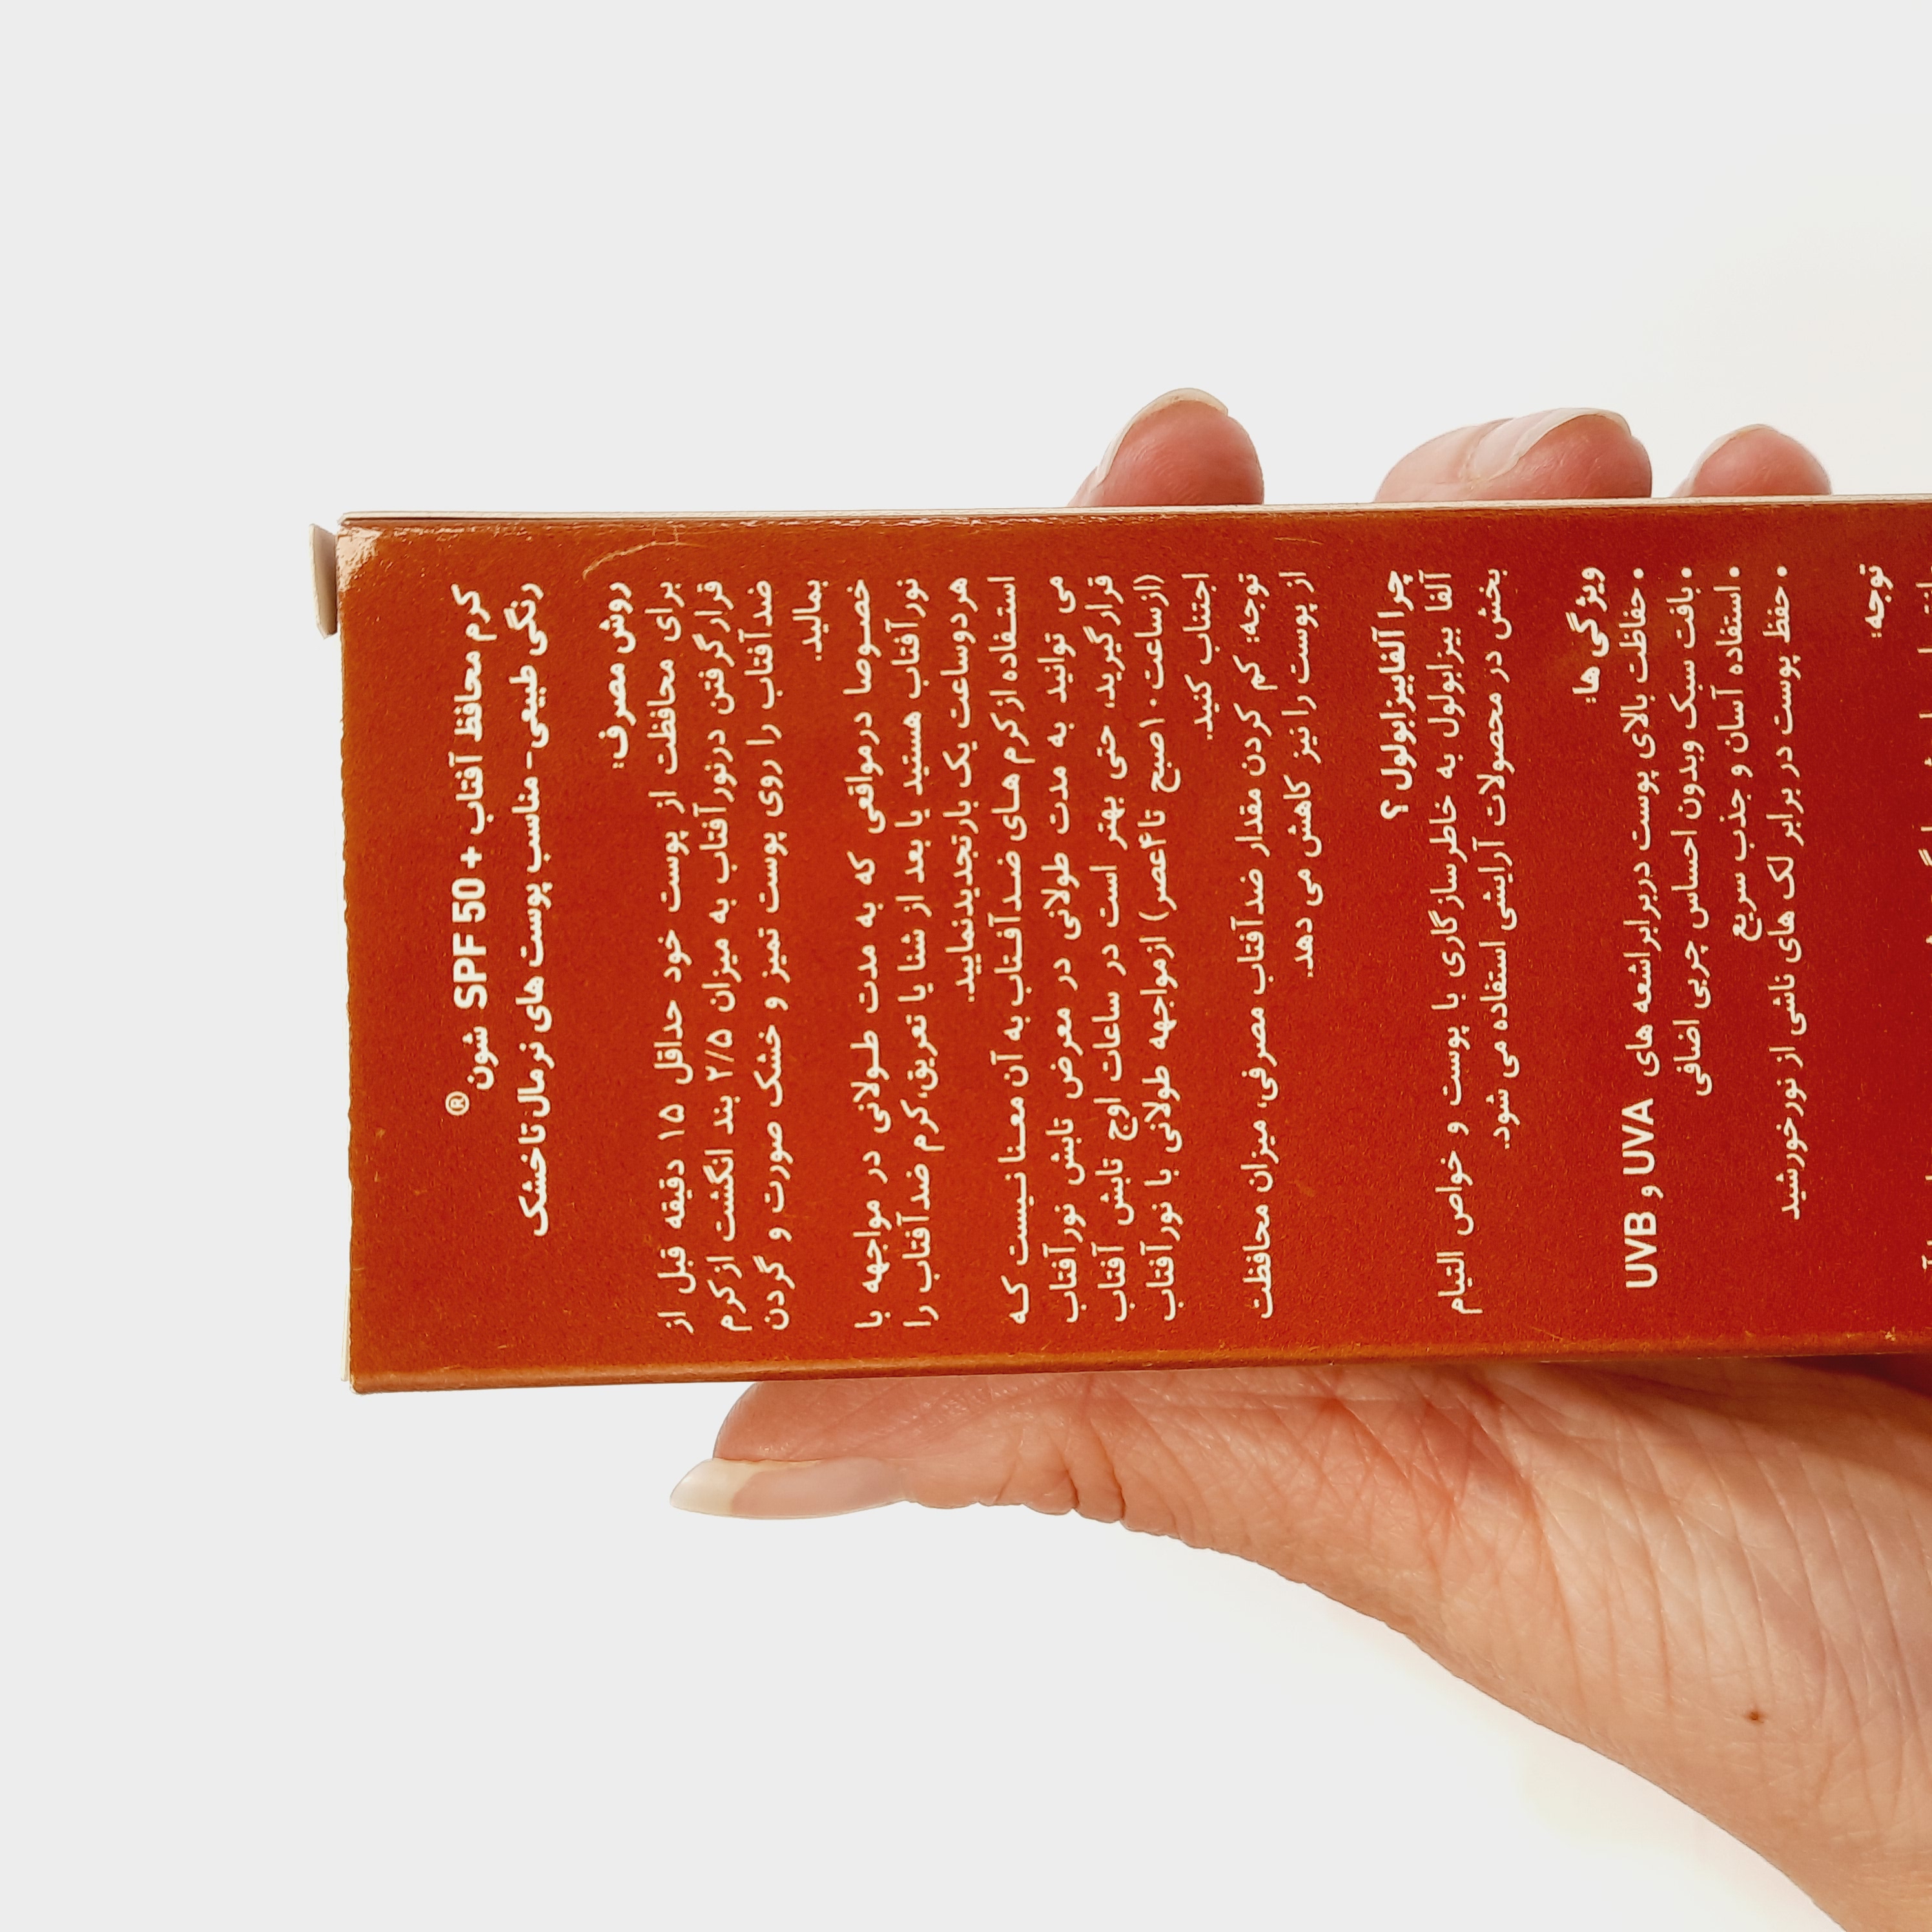 کرم محافظ آفتاب SPF 50+ شون®
رنگی طبیعی- مناسب پوست های نرمال تا خشک
روش مصرف:
برای محافظت از پوست خود حداقل ۱۵ دقیقه قبل از
قرار گرفتن در نور آفتاب به میزان ۲/۵ بند انگشت از کرم
ضد آفتاب را روی پوست تمیز و خشک صورت و گردن
بمالید.
خصوصا در مواقعی که به مدت طولانی در مواجهه با
نور آفتاب هستید یا بعد از شنا یا تعریق، کرم ضد آفتاب را
هر دو ساعت یک بار تجدید نمایید.
استفاده از کرم های ضد آفتاب به آن معنا نیست که
می توانید به مدت طولانی در معرض تابش نور آفتاب
قرار گیرید، حتی بهتر است در ساعات اوج تابش آفتاب
(از ساعت ۱۰ صبح تا ۴ عصر) از مواجهه طولانی با نور آفتاب
اجتناب کنید.
توجه: کم کردن مقدار ضد آفتاب مصرفی، میزان محافظت
از پوست را نیز کاهش می دهد.
چرا آلفابیزابولول ؟
آلفا بیزابولول به خاطر سازگاری با پوست و خواص التیام
بخش در محصولات آرایشی استفاده می شود.
ویژگی ها:
• حفاظت بالای پوست در برابر اشعه های UVA و UVB
• بافت سبک و بدون احساس چربی اضافی
• استفاده آسان و جذب سریع
• حفظ پوست در برابر لک های ناشی از نور خورشید
توجه: